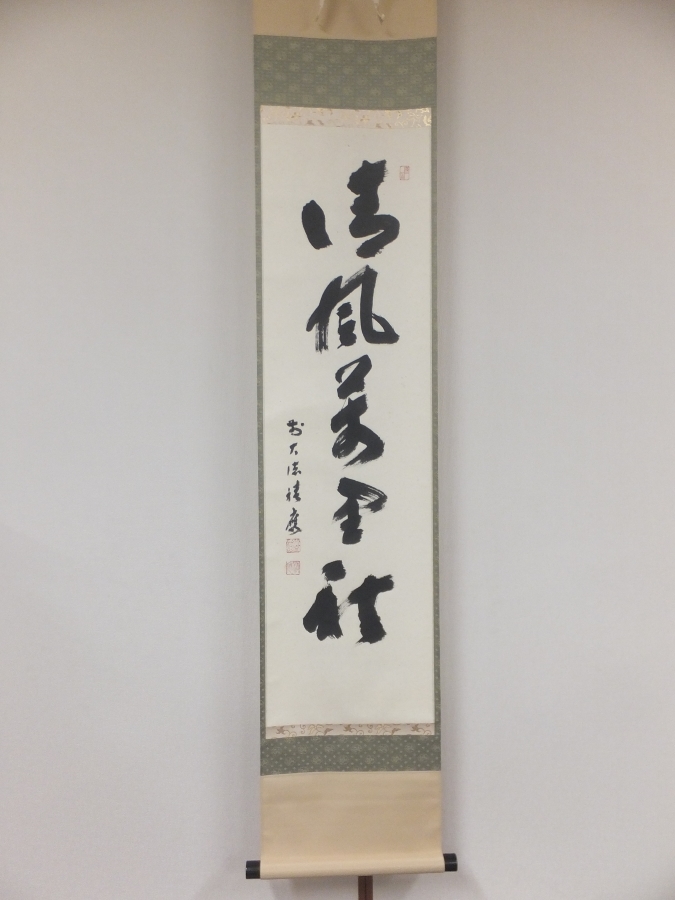 清風萬里秋
前大徳積應